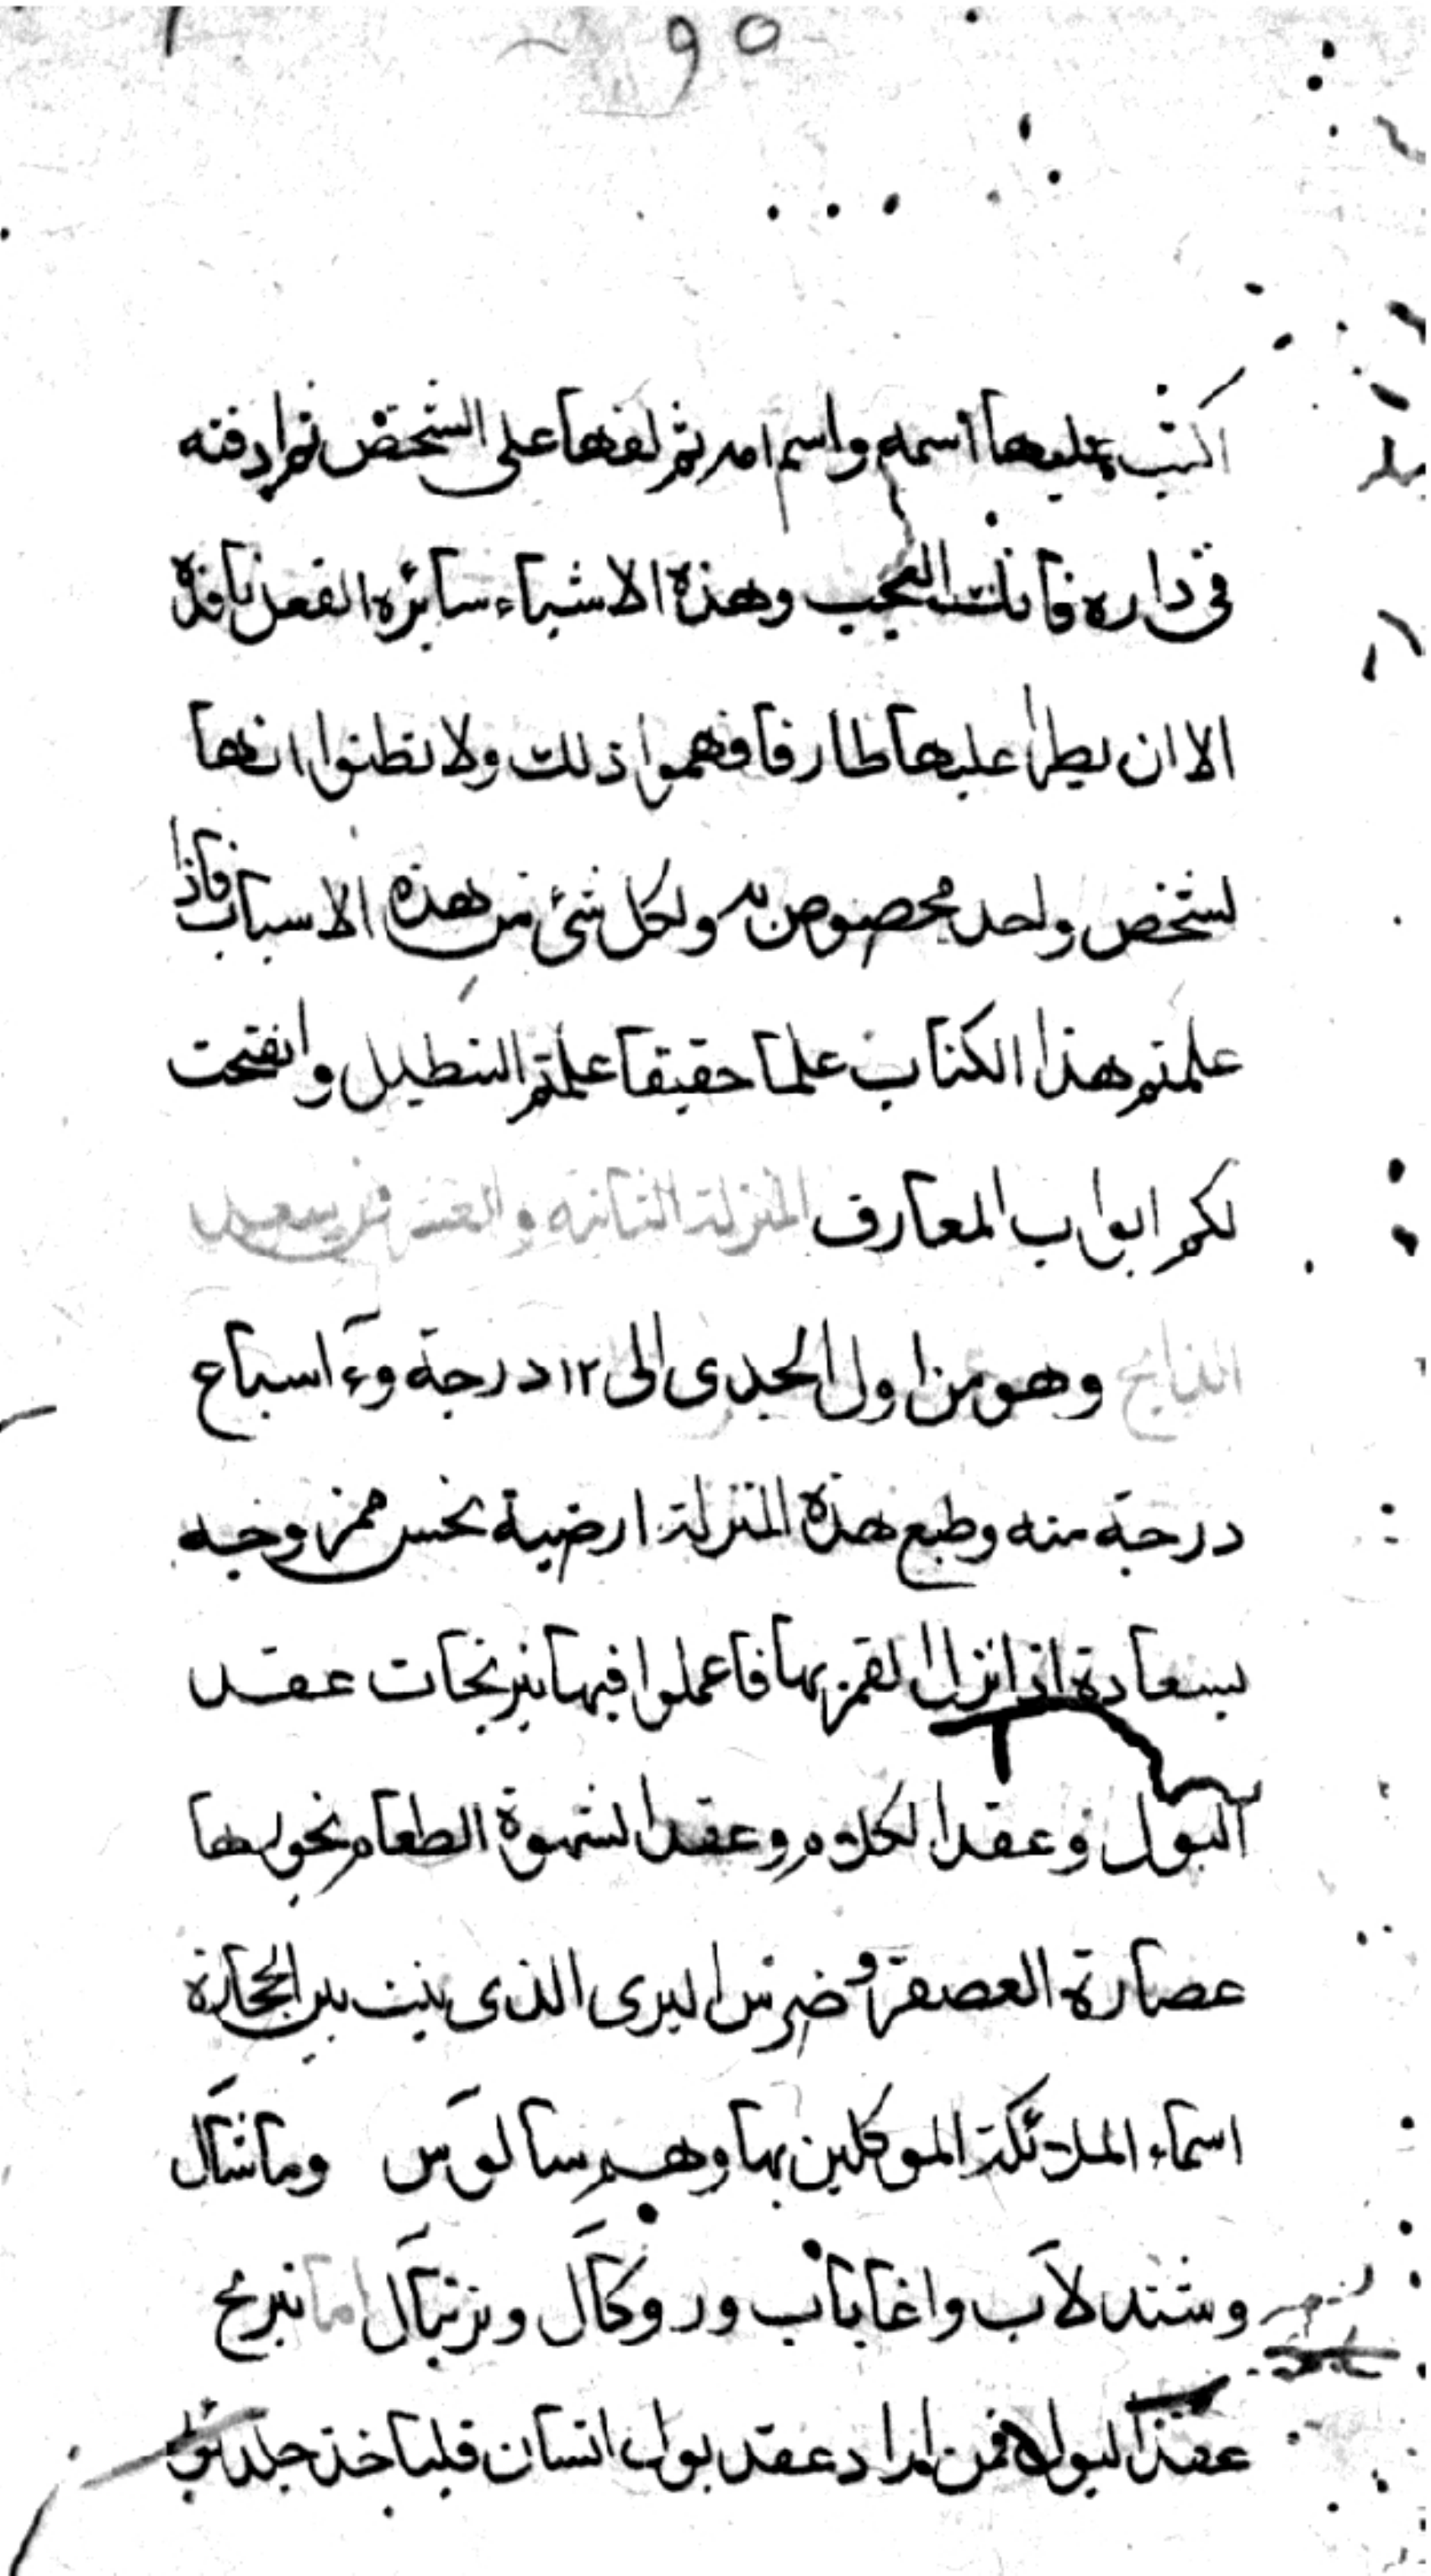 ٩٥
اكتب عليها اسمه واسم امه ثم لفها على الشخص ثم ادفنه
فى داره فانك العجب وهذه الاشياء سائره الفعل نافذة
الا ان يطرا عليها طارفا فهموا ذلك ولا تظنوا انها
لشخص واحد مخصوص به ولكل شئ من هذه الاسباب فاذا
علمتم هذا الكتاب علما حقيقا علمتم التنطيل وانفتحت
لكم ابواب المعارف المنزلة الثانيه والعشرين سعد
الذابح وهو من اول الجدى الى ١٢ درجة و٤ اسباع
درجة منه وطبع هذه المنزلة ارضية نحس ممزوجه
بسعادة اذا نزل القمر بها فاعملوا فيها نيرنجات عقد
البول وعقد الكلام وعقد الشهوة الطعام بخورها
عصارة العصفر وضرس البرى الذى ينبت بين الحجارة
اسماء الملائكة الموكلين بها وهم سالوس وماشال
وشندلاب واغاباب وروكال ونزيال اما نيرنج
عقد البول فمن اراد عقد بول انسان فلياخذ جلد